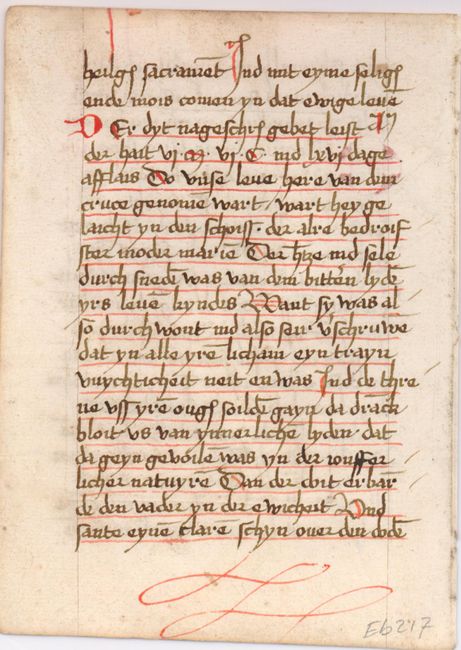 heilgē sacramēt Ind mit eyme seligē
ende mois comen yn dat ewige leuē
Der dyt nageschrē gebet leist
der hait vj m vj c ind lxvj dage
afflais Do vnse leue here van dem
cruce genomē wart wart hey ge
laicht yn den schoiss der alre bedroif
ster moder mariē Der hʼtze ind sele
durch snedē was van dem bittēn lydē
yrs leuē kyndes Want sy was al
so durch wont ind also seir vʼschruwē
dat yn alle yrē licham eyn trayn
vuychticheit neit en was Ind de thre
ne vss yrē ougē soildē gayn da dranck
bloit vs van ynnerlichē lyden dat
da geyn gevoile was yn der ionffer
licher natuyrē Dan der doit erbarʼ
de den vader yn der ewicheit Vnd
sante eynē clare schyn ouer den dodē
Eb 217